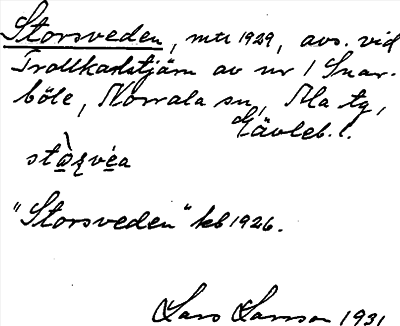 Storsveden, mtl 1929, avs. vid
Trollkarlstjärn av nr 1 Snar-
böle, Norrala sn, Ala tg,
Gävleb. l.
sto̱ʂve̱a
"Storsveden" kb 1926.
Lars Larsson 1931